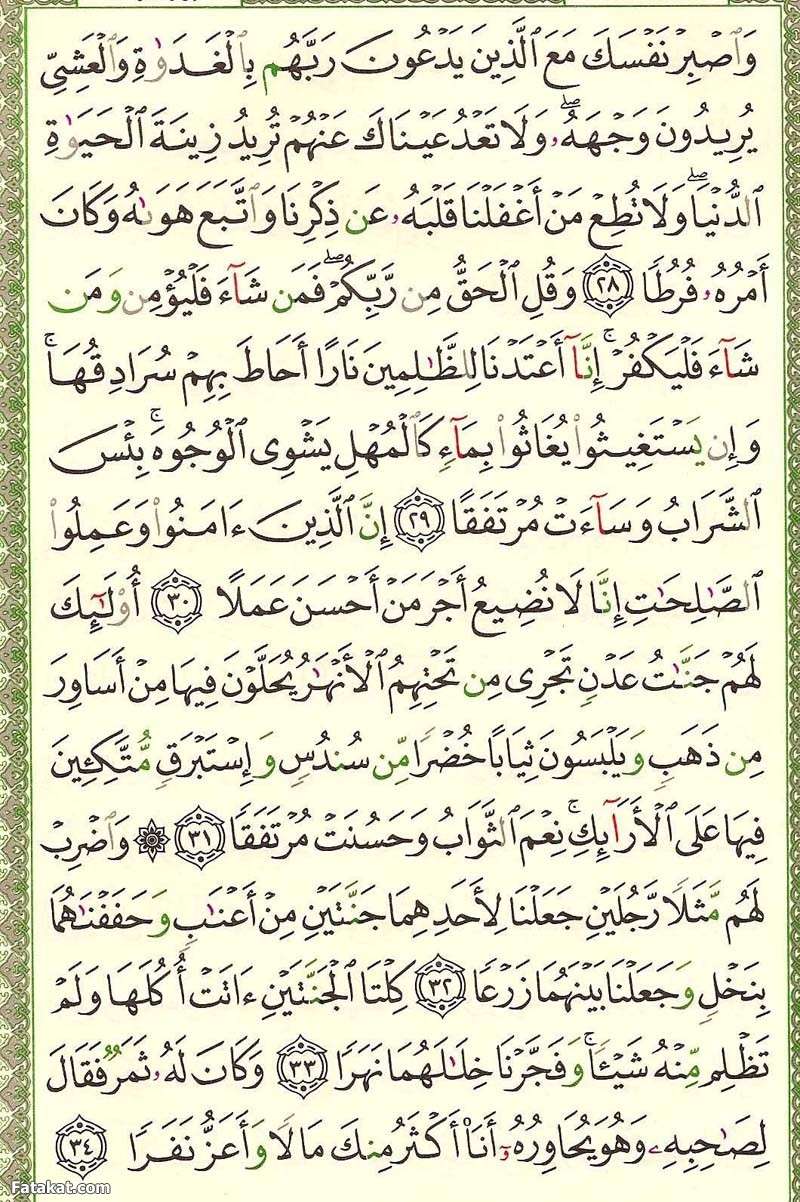 وَٱصۡبِرۡ نَفۡسَكَ مَعَ ٱلَّذِينَ يَدۡعُونَ رَبَّهُم بِٱلۡغَدَوٰةِ وَٱلۡعَشِيِّ
يُرِيدُونَ وَجۡهَهُۥۖ وَلَا تَعۡدُ عَيۡنَاكَ عَنۡهُمۡ تُرِيدُ زِينَةَ ٱلۡحَيَوٰةِ
ٱلدُّنۡيَاۖ وَلَا تُطِعۡ مَنۡ أَغۡفَلۡنَا قَلۡبَهُۥ عَن ذِكۡرِنَا وَٱتَّبَعَ هَوَىٰهُ وَكَانَ
أَمۡرُهُۥ فُرُطٗا ٢٨ وَقُلِ ٱلۡحَقُّ مِن رَّبِّكُمۡۖ فَمَن شَآءَ فَلۡيُؤۡمِن وَمَن
شَآءَ فَلۡيَكۡفُرۡۚ إِنَّآ أَعۡتَدۡنَا لِلظَّٰلِمِينَ نَارًا أَحَاطَ بِهِمۡ سُرَادِقُهَاۚ
وَإِن يَسۡتَغِيثُواْ يُغَاثُواْ بِمَآءٖ كَٱلۡمُهۡلِ يَشۡوِي ٱلۡوُجُوهَۚ بِئۡسَ
ٱلشَّرَابُ وَسَآءَتۡ مُرۡتَفَقًا ٢٩ إِنَّ ٱلَّذِينَ ءَامَنُواْ وَعَمِلُواْ
ٱلصَّٰلِحَٰتِ إِنَّا لَا نُضِيعُ أَجۡرَ مَنۡ أَحۡسَنَ عَمَلًا ٣٠ أُوْلَٰٓئِكَ
لَهُمۡ جَنَّٰتُ عَدۡنٖ تَجۡرِي مِن تَحۡتِهِمُ ٱلۡأَنۡهَٰرُ يُحَلَّوۡنَ فِيهَا مِنۡ أَسَاوِرَ
مِن ذَهَبٖ وَيَلۡبَسُونَ ثِيَابًا خُضۡرٗا مِّن سُندُسٖ وَإِسۡتَبۡرَقٖ مُّتَّكِـِٔينَ
فِيهَا عَلَى ٱلۡأَرَآئِكِۚ نِعۡمَ ٱلثَّوَابُ وَحَسُنَتۡ مُرۡتَفَقٗا ٣١ ۞ وَٱضۡرِبۡ
لَهُم مَّثَلٗا رَّجُلَيۡنِ جَعَلۡنَا لِأَحَدِهِمَا جَنَّتَيۡنِ مِنۡ أَعۡنَٰبٖ وَحَفَفۡنَٰهُمَا
بِنَخۡلٖ وَجَعَلۡنَا بَيۡنَهُمَا زَرۡعٗا ٣٢ كِلۡتَا ٱلۡجَنَّتَيۡنِ ءَاتَتۡ أُكُلَهَا وَلَمۡ
تَظۡلِم مِّنۡهُ شَيۡـٔٗاۚ وَفَجَّرۡنَا خِلَٰلَهُمَا نَهَرٗا ٣٣ وَكَانَ لَهُۥ ثَمَرٞ فَقَالَ
لِصَٰحِبِهِۦ وَهُوَ يُحَاوِرُهُۥٓ أَنَا۠ أَكۡثَرُ مِنكَ مَالٗا وَأَعَزُّ نَفَرٗا ٣٤
Fatakat.com